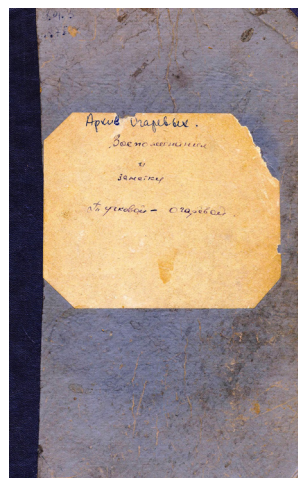 Архив Огаревых.
Воспоминания
и
заметки
Тучковой - Огаревой